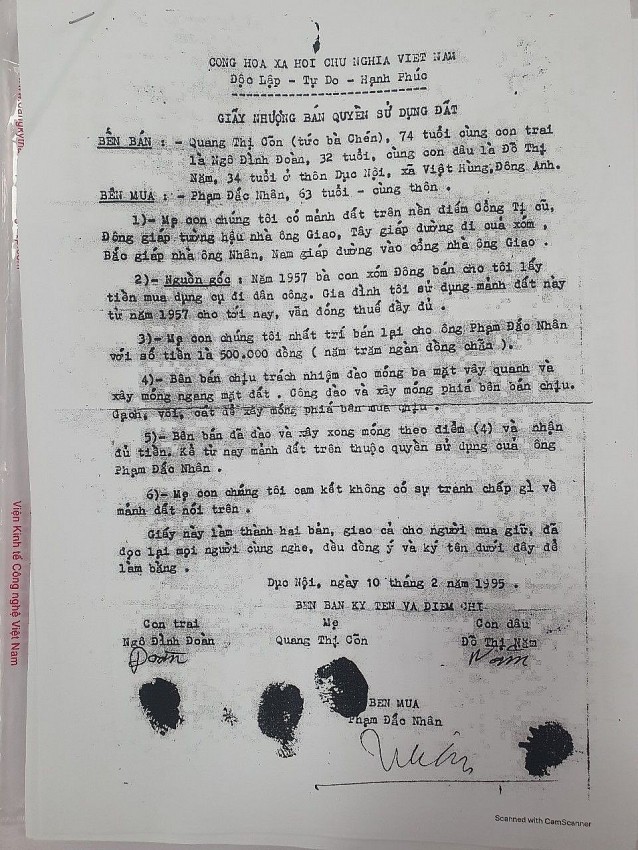 CỘNG HOA XA HOI CHU NGHIA VIET NAM
Độc Lập - Tự Do - Hạnh Phúc
GIẤY NHƯỢNG BÁN QUYỀN SỬ DỤNG ĐẤT
BÊN BÁN : - Quang Thị Cõn (tức bà Chén), 74 tuổi cùng con trai
là Ngô Đình Đoàn, 32 tuổi, cùng con dâu là Đỗ Thị
Năm, 34 tuổi ở thôn Dục Nội, xã Việt Hùng, Đông Anh.
BÊN MUA : - Phạm Đắc Nhân, 63 tuổi - cùng thôn .
1)- Mẹ con chúng tôi có mảnh đất trên nền điếm Cổng Tị cũ,
Đông giáp tường hậu nhà ông Giao, Tây giáp đường đi quả xóm ,
Bắc giáp nhà ông Nhân, Nam giáp đường vào cổng nhà ông Giao .
2)- Nguồn gốc : Năm 1957 bà con xóm Đông bán cho tôi lấy
tiền mua dụng cụ đi dân công. Gia đình tôi sử dụng mảnh đất này
từ năm 1957 cho tới nay, vẫn đóng thuế đầy đủ .
3)- Mẹ con chúng tôi nhất trí bán lại cho ông Phạm Đắc Nhân
với số tiền là 500.000 đồng ( năm trăm ngàn đồng chẵn ).
4)- Bên bán chịu trách nhiệm đào móng ba mặt vây quanh và
xây móng ngang mặt đất . Công đào và xây móng phía bên bán chịu.
Gạch, vôi, cát để xây móng phía bên mua chịu .
5)- Bên bán đã đào và xây xong móng theo điểm (4) và nhận
đủ tiền. Kể từ nay mảnh đất trên thuộc quyền sử dụng quả ông
Phạm Đắc Nhân .
6)- Mẹ con chúng tôi cam kết không có sự tranh chấp gì về
mảnh đất nói trên .
Giấy này làm thành hai bản, giao cả cho người mua giữ, đã
đọc lại mọi người cùng nghe, đều đồng ý và ký tên dưới đây để
làm bằng .
Dục Nội, ngày 10 tháng 2 năm 1995 .
BEN BAN KY TEN VA DIEM CHI
Con trai Mẹ Con dâu
Ngô Đình Đoàn Quang Thị Cõn Đỗ Thị Năm
Đoàn Năm
BEN MUA
Phạm Đắc Nhân
Nhân
Viện Kinh tế Công nghệ Việt Nam
Scanned with CamScanner